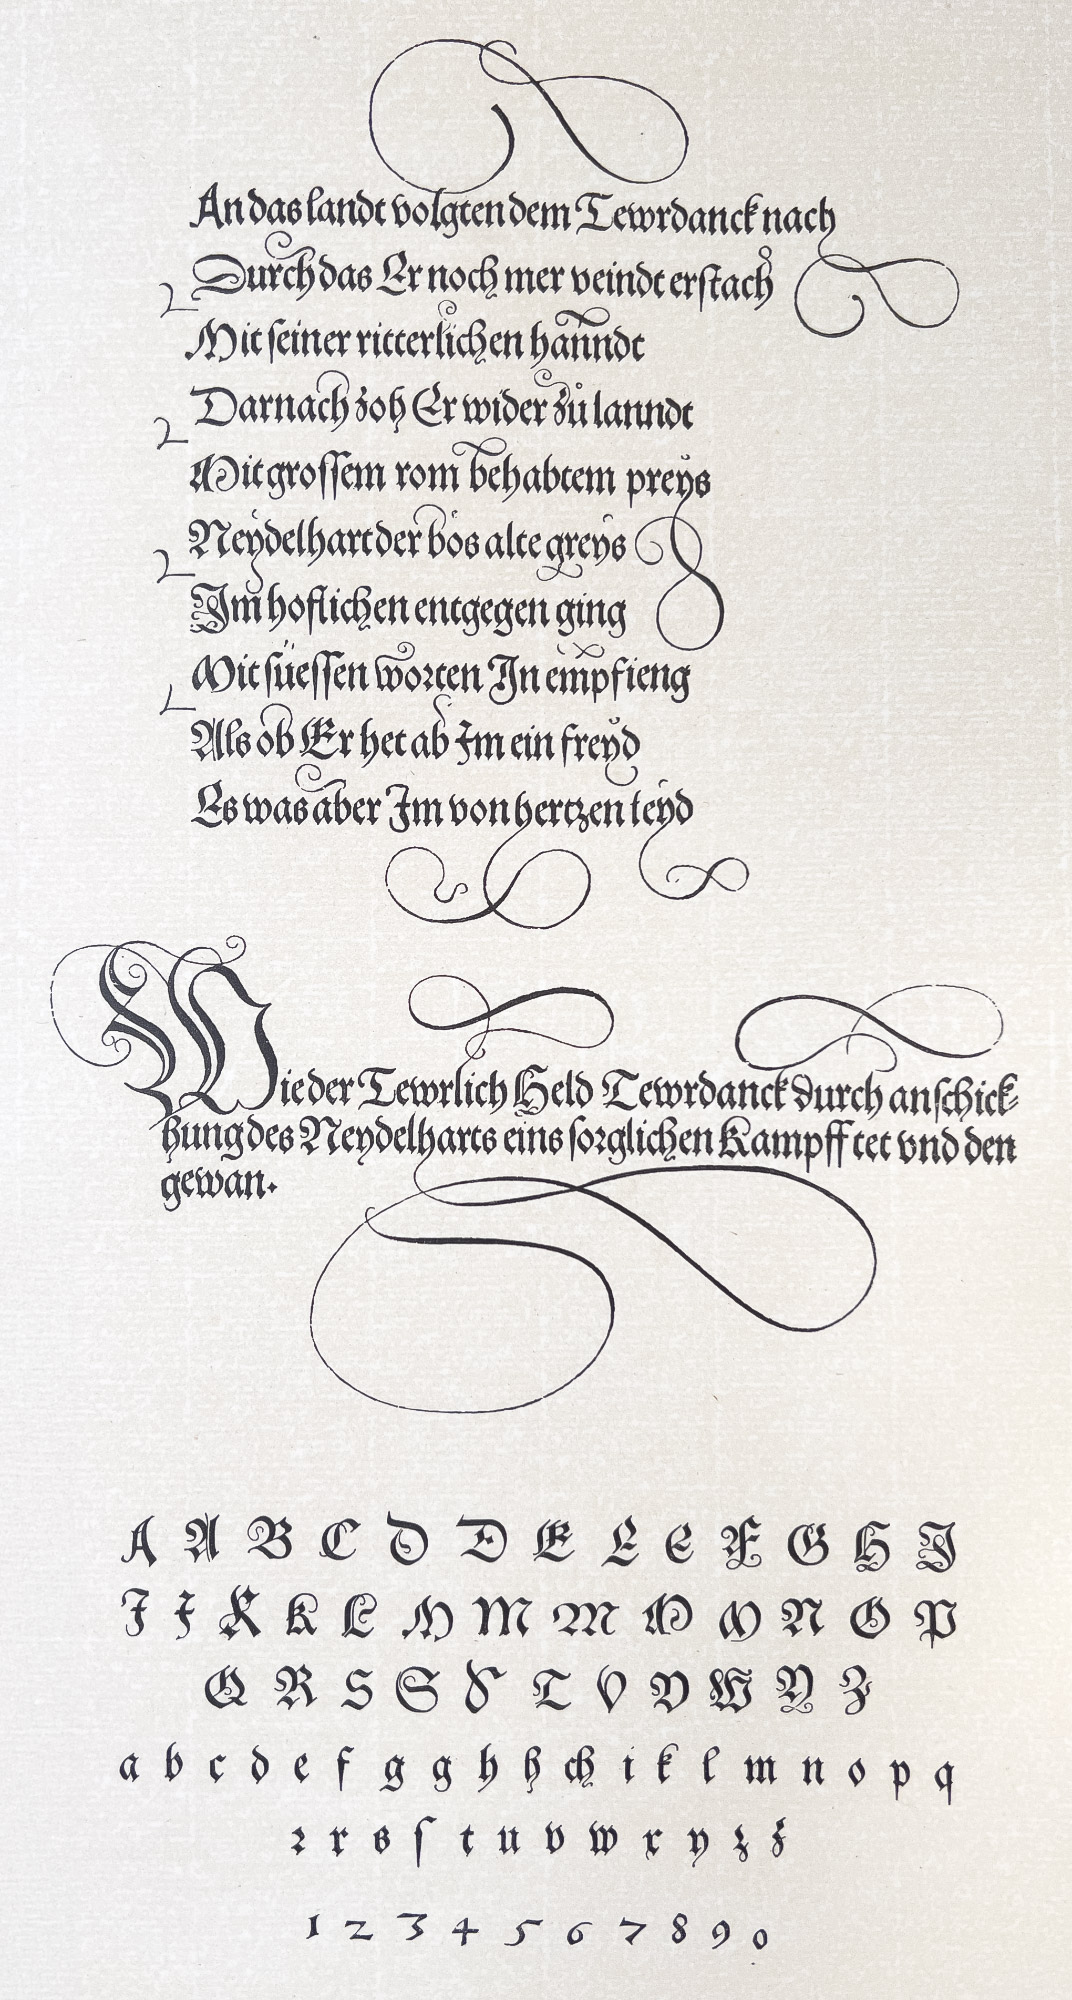 An das landt volgten dem Tewrdanck nach
Durch das Er noch mer veindt erstach
Mit seiner ritterlichen hanndt
Darnach zoh Er wider zů lanndt
Mit grossem rom behabtem preys
Neydelhart der bös alte greys
Im hoflichen entgegen ging
Mit süessen worten In empfieng
Als ob Er het ab Im ein freyd
Es was aber Im von hertzen leyd
Wie der Tewrlich Held Tewrdanck durch anschick-
hung des Neydelharts eins sorglichen Kampff tet vnd den
gewan.
A A B C D D E E E F G H I
I I K K L M M M M M N O P
Q R S S S T V V W Y Z
a b c d e f g g h h ch i k l m n o p q
r r s ſ t u v w x y z z
1 2 3 4 5 6 7 8 9 0